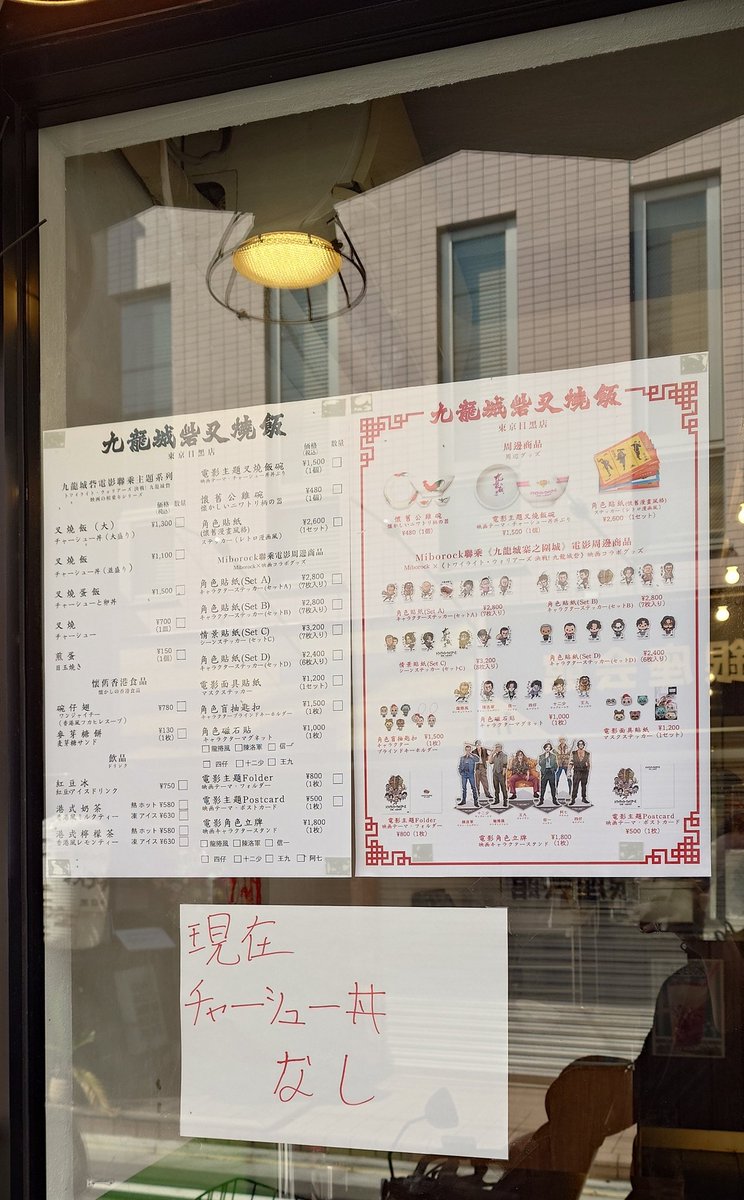 九龍城砦叉燒飯
東京目黒店
九龍城砦電影聯乘主題系列
トワイライト・ウォリアーズ 決戦! 九龍城砦
映画の相乗モシリーズ
価格
(税込)
数量
叉燒飯 (大)
チャーシュー丼 (大盛り)
¥1,300
叉燒飯
チャーシュー丼 (並盛り)
¥1,100
叉燒蛋飯
チャーシューと卵丼
¥1,500
叉燒
チャーシュー
¥700
(1皿)
煎蛋
目玉焼き
¥150
(1個)
懷舊香港食品
懐かしの香港食品
碗仔翅
ワンジャイチー
(香港風フカヒレスープ)
¥780
麥芽糖餅
麦芽糖サンド
¥130
(1枚)
飲品
ドリンク
紅豆冰
紅豆アイスドリンク
¥750
港式奶茶
香港風ミルクティー
熱 ホット ¥580
凍 アイス ¥630
港式檸檬茶
香港風レモンティー
熱 ホット ¥580
凍 アイス ¥630
価格
(税込)
数量
電影主題叉燒飯碗
映画テーマ・チャーシュー丼どんぶり
¥1,500
(1個)
懷舊公雞碗
懐かしいニワトリ柄の器
¥480
(1個)
角色貼紙
(懷舊漫畫風格)
ステッカー(レトロ漫画風)
¥2,600
(1セット)
Miborock聯乘電影周邊商品
Miborock×映画コラボグッズ
角色貼紙(Set A)
キャラクターステッカー(セットA)
¥2,800
(7枚入り)
角色貼紙(Set B)
キャラクターステッカー(セットB)
¥2,800
(7枚入り)
情景貼紙(Set C)
シーンステッカー(セットC)
¥3,200
(7枚入り)
角色貼紙(Set D)
キャラクターステッカー(セットD)
¥2,400
(6枚入り)
電影面具貼紙
マスクステッカー
¥1,200
(1セット)
角色盲抽匙扣
キャラクターブラインドキーホルダー
¥1,500
(1枚)
角色磁石貼
キャラクターマグネット
¥1,000
(1枚)
龍捲風 陳洛軍 信一
四仔 十二少 王九
電影主題Folder
映画テーマ・フォルダー
¥800
(1枚)
電影主題Postcard
映画テーマ・ポストカード
¥500
(1枚)
電影角色立牌
映画キャラクタースタンド
¥1,800
(1枚)
龍捲風 陳洛軍 信一
四仔 十二少 王九 阿七
九龍城砦叉燒飯
東京目黒店
周邊商品
周辺グッズ
懷舊公雞碗
懐かしいニワトリ柄の器
¥480 (1個)
電影主題叉燒飯碗
映画テーマ・チャーシュー丼どんぶり
¥1,500 (1個)
角色貼紙(懷舊漫畫風格)
ステッカー(レトロ漫画風)
¥2,600 (1セット)
Miborock聯乘《九龍城寨之圍城》電影周邊商品
Miborock ×《トワイライト・ウォリアーズ 決戦! 九龍城砦》映画コラボグッズ
角色貼紙(Set A)
キャラクターステッカー(セットA)
¥2,800
(7枚入り)
角色貼紙(Set B)
キャラクターステッカー(セットB)
¥2,800
(7枚入り)
情景貼紙(Set C)
シーンステッカー(セットC)
¥3,200
角色貼紙(Set D)
キャラクターステッカー(セットD)
¥2,400
(6枚入り)
角色盲抽匙扣
キャラクター
ブラインドキーホルダー
¥1,500
(1枚)
角色磁石貼
キャラクターマグネット
¥1,000
(1枚)
電影面具貼紙
マスクステッカー
¥1,200
(1セット)
電影主題Folder
映画テーマ・フォルダー
¥800 (1枚)
電影角色立牌
映画キャラクタースタンド
¥1,800
(1枚)
電影主題Postcard
映画テーマ・ポストカード
¥500 (1枚)
現在
チャーシュー丼
なし